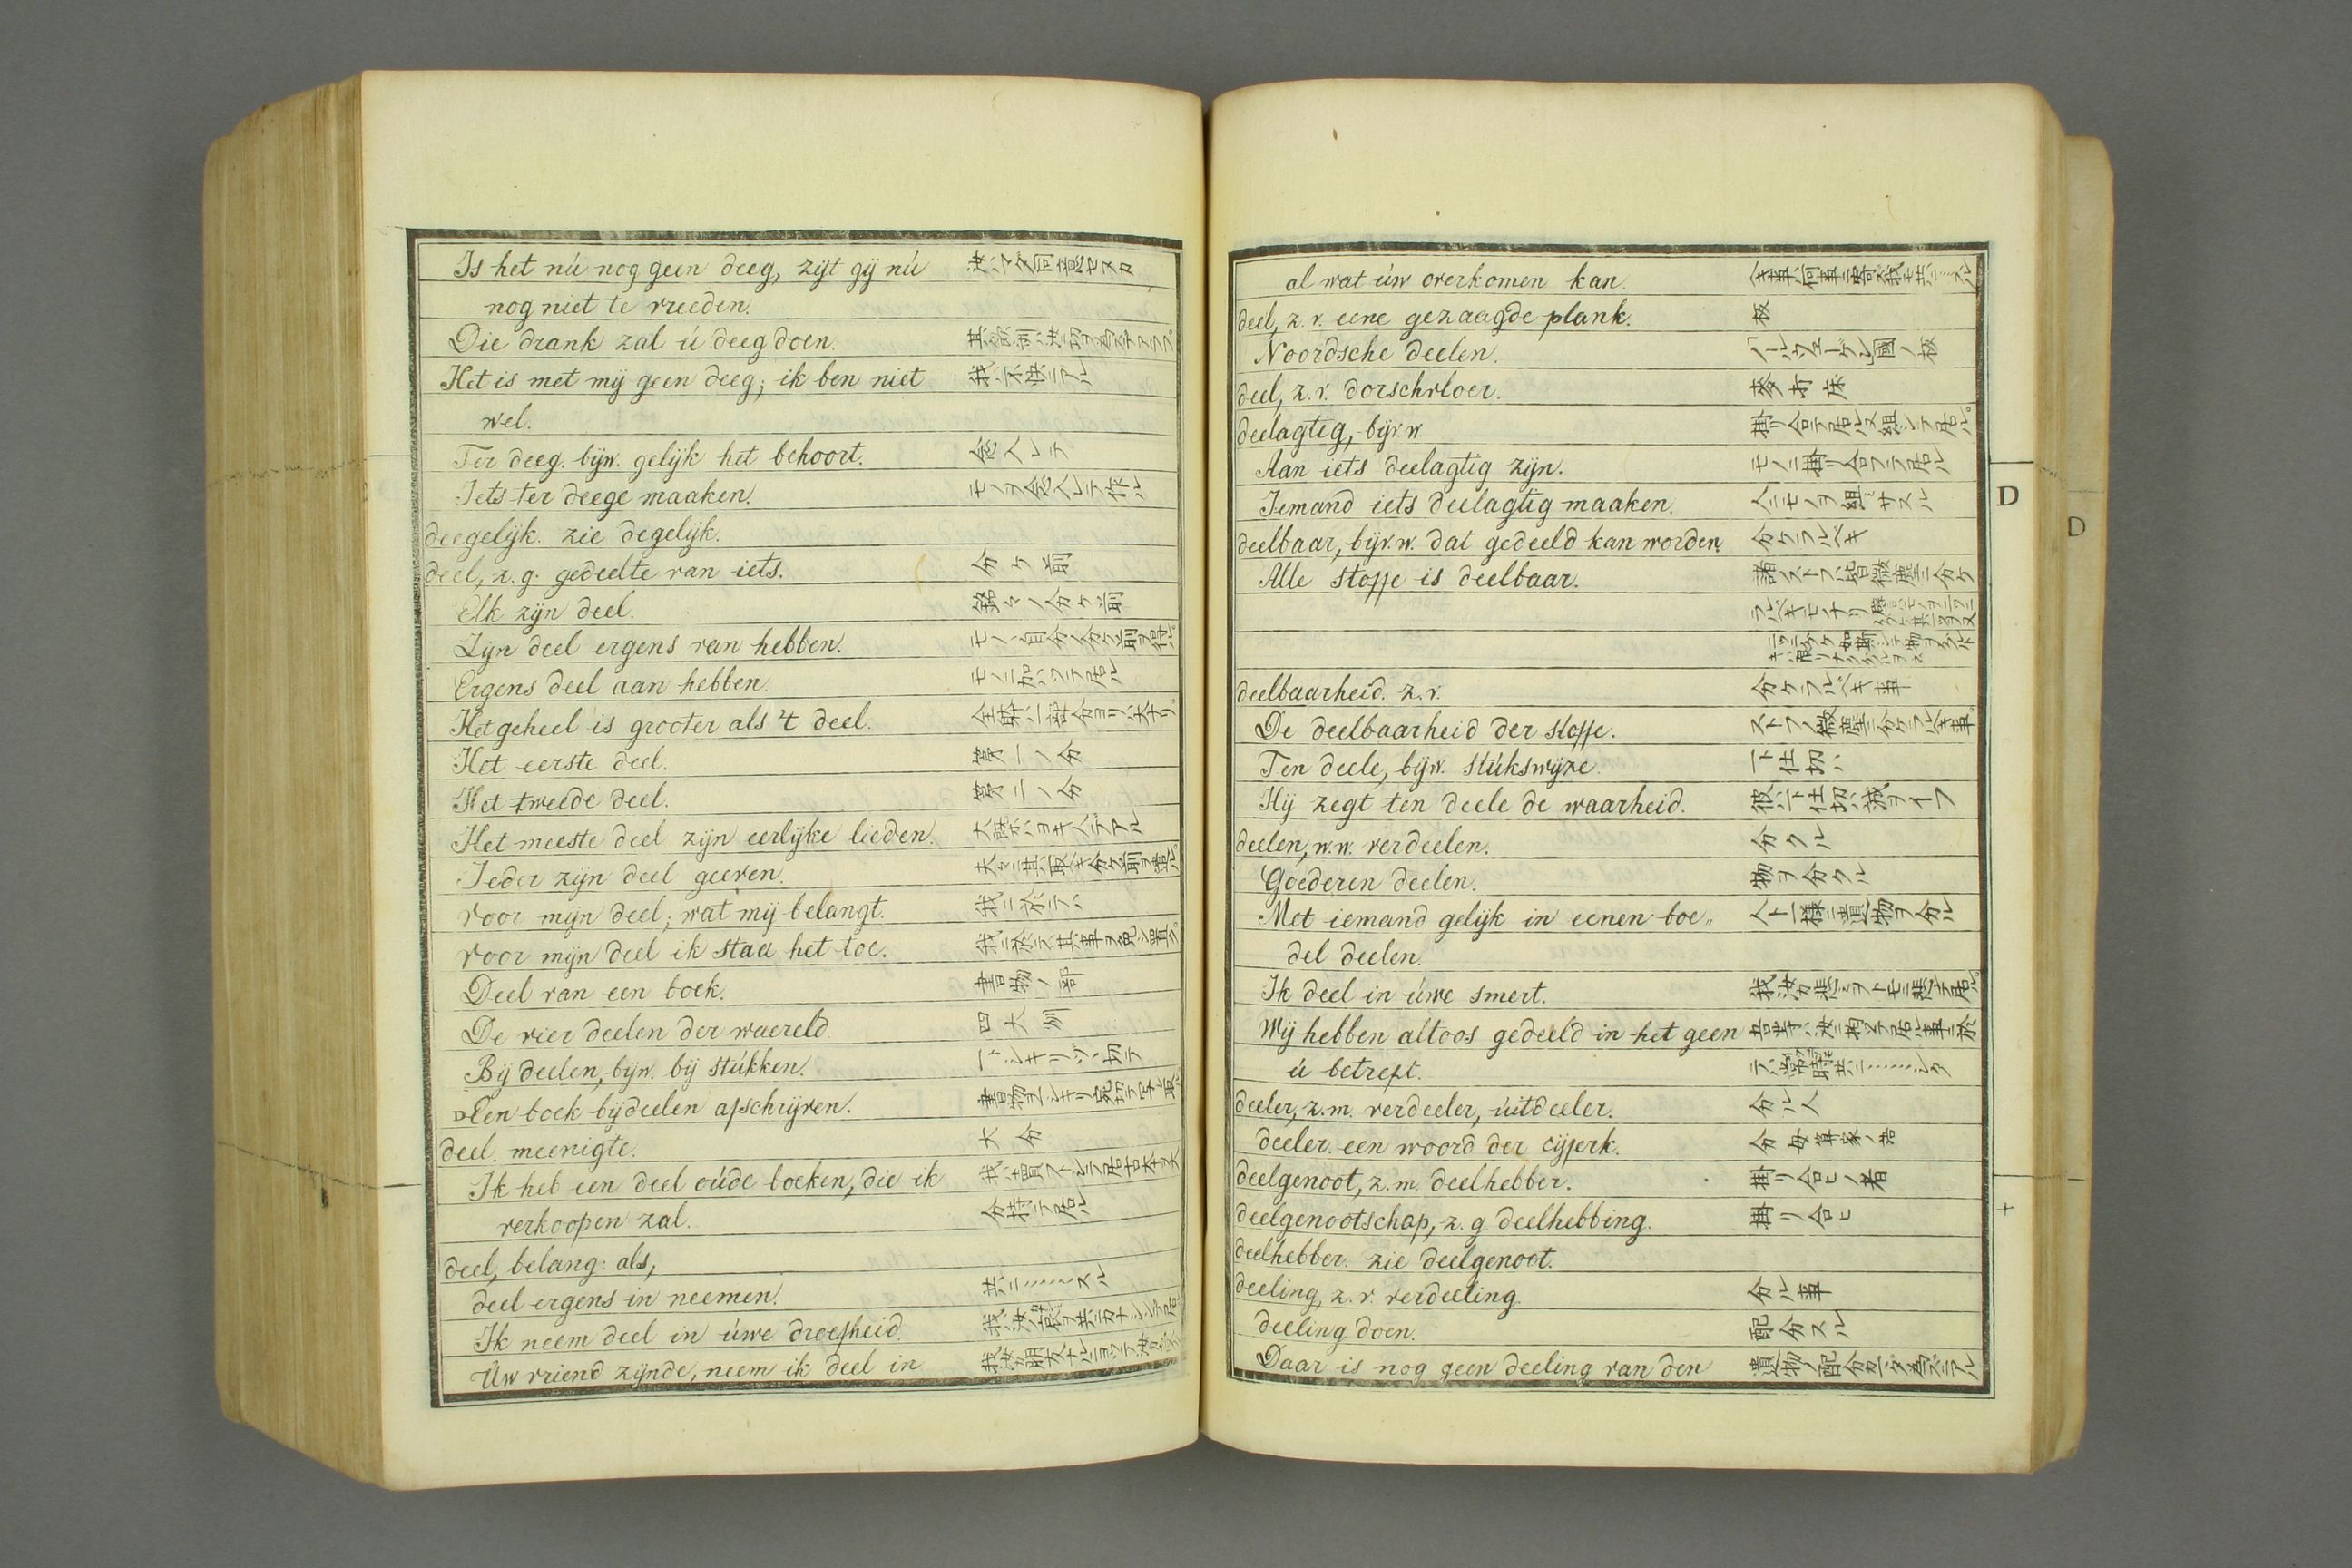 Is het nú nog geen deeg, zijt gij nú
nog niet te vreeden.
Die drank zal ú deeg doen.
Het is met mij geen deeg; ik ben niet 我ハ不快ニアル
wel.
Ter deeg. bijw. gelijk het behoort. 念入レテ
Iets ter deege maaken. モノヲ念入レテ作ル
deegelijk. zie degelijk.
deel, z.g. gedeelte van iets. 分ケ前
Elk zijn deel. 銘々ノ分ケ前
Zijn deel ergens van hebben. モノヽ自分ノ分ケ前ヲ得ル
Ergens deel aan hebben. モノニ加ハツテ居ル
Het geheel is grooter als 't deel. 全躰ハ一部分ヨリハ大ナリ
Het eerste deel. 第一ノ分
Het tweede deel. 第二ノ分
Het meeste deel zijn eerlijke lieden. 大躰ハヨキ人デアル
Ieder zijn deel geeven.
voor mijn deel; wat mij belangt. 我ニ於テハ
voor mijn deel ik staa het toe.
Deel van een boek. 書物ノ部
De vier deelen der waereld. 四大洲
Bij deelen, bijw. bij stúkken.
Een boek bij deelen afschrijven.
deel. meenigte. 大分
Ik heb een deel oúde boeken, die ik
verkoopen zal. 分持テ居ル
deel, belang: als,
deel ergens in neemen. 共ニ……スル
Ik neem deel in úwe droefheid.
Úw vriend zijnde, neem ik deel in
al wat úw overkomen kan.
deel, z.v. eene gezaagde plank. 板
Noordsche deelen. 「ノールウェーゲン」國ノ板
deel, z.v. dorschvloer. 麥打床
deelagtig, bijv.w. 掛リ合テ居ル又組シテ居ル
Aan iets deelagtig zijn. モノニ掛リ合フテ居ル
Iemand iets deelagtig maaken. 人ニモノヲ組ミサスル
deelbaar, bijv.w. dat gedeeld kan worden. 分ケラルベキ
Alle stoffe is deelbaar. 諸ストフハ皆微塵ニ分ケ
deelbaarheid. z.v. 分ケラルベキ事
De deelbaarheid der stoffe. ストフノ微塵ニ分ケラルベキ事
Ten deele, bijw. stúkswijze. 一ト仕切ハ
Hij zegt ten deele de waarheid.
deelen, w.w. verdeelen. 分クル
Goederen deelen. 物ヲ分クル
Met iemand gelijk in eenen boe„ 人ト一様ニ遺物ヲ分ル
del deelen.
Ik deel in úwe smert.
Wij hebben altoos gedeeld in het geen
ú betreft.
deeler, z.m. verdeeler, úitdeeler. 分ル人
deeler. een woord der cijferk.
deelgenoot, z.m. deelhebber. 掛リ合ヒノ者
deelgenootschap, z.g. deelhebbing. 掛リ合ヒ
deelhebber. zie deelgenoot.
deeling, z.v. verdeeling. 分ル事
deeling doen. 配分スル
Daar is nog geen deeling van den
D
D